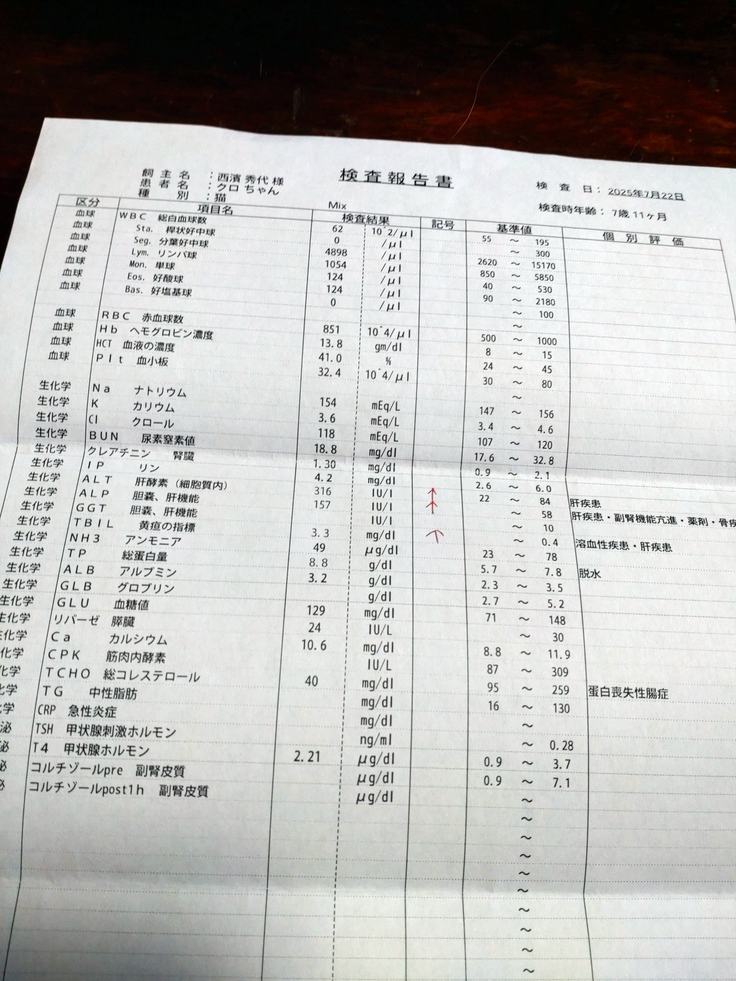 検査報告書
飼主名 : 西濱 秀代 様
患者名 : クロ ちゃん
種別 : 猫 Mix
検査日: 2025年7月22日
検査時年齢: 7歳 11ヶ月
区分 項目名 検査結果 記号 基準値 個別評価
血球 WBC 総白血球数 62 10^2/μl 55 ～ 195
血球 Sta. 桿状好中球 0 /μl ～ 300
血球 Seg. 分葉好中球 4898 /μl 2620 ～ 15170
血球 Lym. リンパ球 1054 /μl 850 ～ 5850
血球 Mon. 単球 124 /μl 40 ～ 530
血球 Eos. 好酸球 124 /μl 90 ～ 2180
Bas. 好塩基球 0 /μl ～ 100
～
血球 RBC 赤血球数 851 10^4/μl 500 ～ 1000
血球 Hb ヘモグロビン濃度 13.8 gm/dl 8 ～ 15
血球 HCT 血液の濃度 41.0 % 24 ～ 45
血球 Plt 血小板 32.4 10^4/μl 30 ～ 80
～
生化学 Na ナトリウム 154 mEq/L 147 ～ 156
生化学 K カリウム 3.6 mEq/L 3.4 ～ 4.6
生化学 Cl クロール 118 mEq/L 107 ～ 120
生化学 BUN 尿素窒素値 18.8 mg/dl 17.6 ～ 32.8
生化学 クレアチニン 腎臓 1.30 mg/dl 0.9 ～ 2.1
生化学 IP リン 4.2 mg/dl 2.6 ～ 6.0
生化学 ALT 肝酵素 (細胞質内) 316 IU/l ↑ 22 ～ 84 肝疾患
生化学 ALP 胆嚢、肝機能 157 IU/l ↑ ～ 58 肝疾患・副腎機能亢進・薬剤・骨疾
生化学 GGT 胆嚢、肝機能 IU/l ～ 10
生化学 TBIL 黄疸の指標 3.3 mg/dl ↑ ～ 0.4 溶血性疾患・肝疾患
生化学 NH3 アンモニア 49 μg/dl 23 ～ 78
生化学 TP 総蛋白量 8.8 g/dl 5.7 ～ 7.8 脱水
生化学 ALB アルブミン 3.2 g/dl 2.3 ～ 3.5
生化学 GLB グロブリン g/dl 2.7 ～ 5.2
生化学 GLU 血糖値 129 mg/dl 71 ～ 148
生化学 リパーゼ 膵臓 24 IU/L ～ 30
化学 Ca カルシウム 10.6 mg/dl 8.8 ～ 11.9
化学 CPK 筋肉内酵素 IU/L 87 ～ 309
化学 TCHO 総コレステロール 40 mg/dl 95 ～ 259 蛋白喪失性腸症
化学 TG 中性脂肪 mg/dl 16 ～ 130
化学 CRP 急性炎症 mg/dl ～
泌 TSH 甲状腺刺激ホルモン ng/ml ～ 0.28
泌 T4 甲状腺ホルモン 2.21 μg/dl 0.9 ～ 3.7
コルチゾールpre 副腎皮質 μg/dl 0.9 ～ 7.1
コルチゾールpost1h 副腎皮質 μg/dl ～
～
～
～
～
～
～
～
～
～